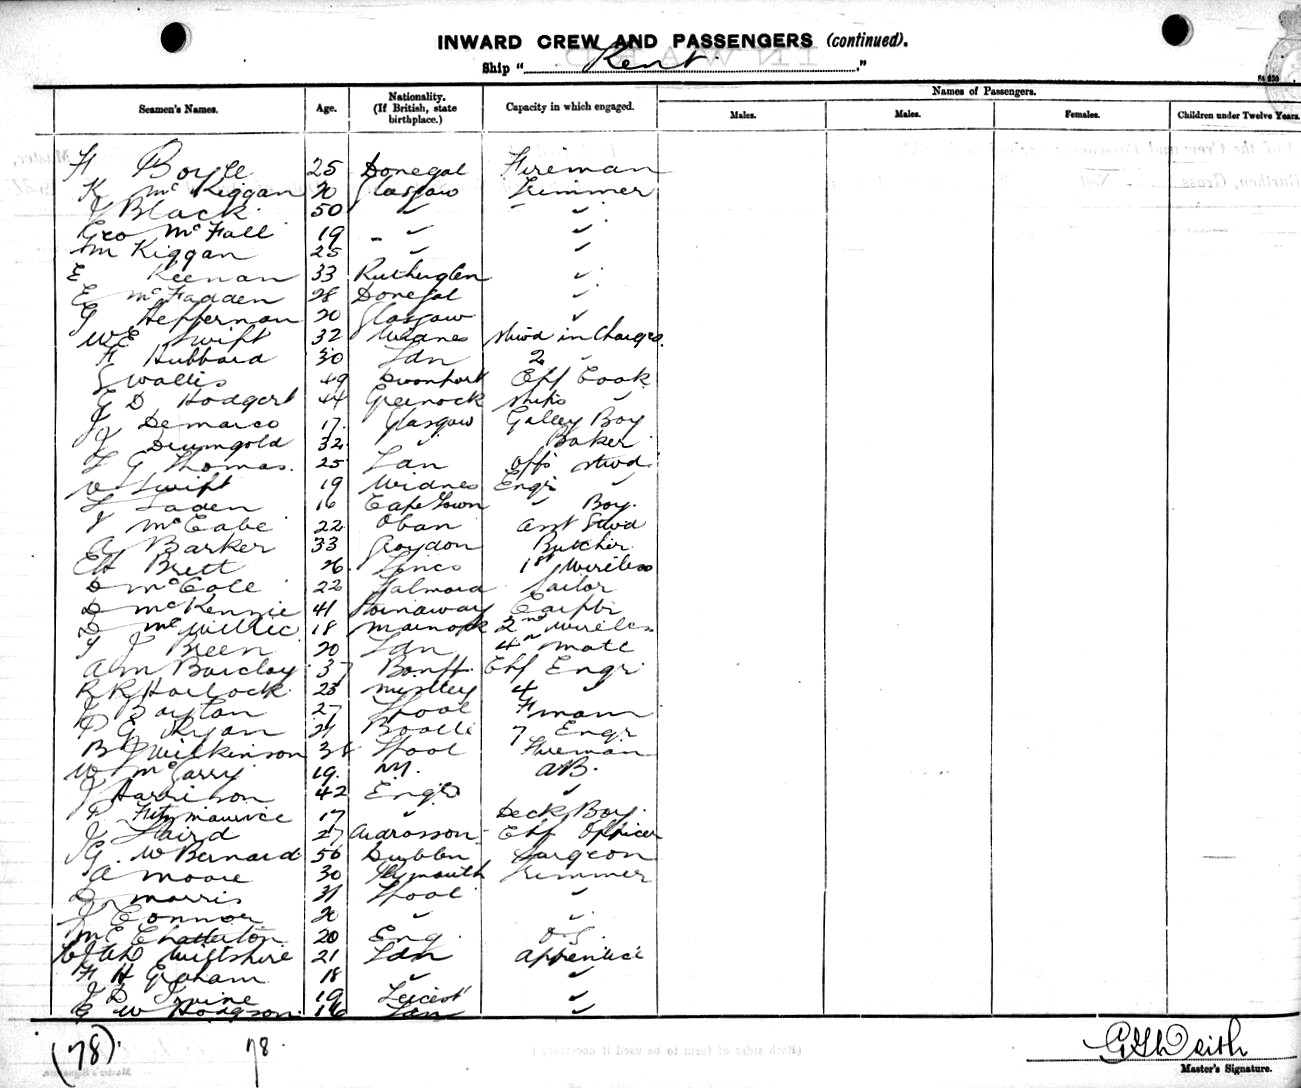 INWARD CREW AND PASSENGERS (continued).
Ship "Kent."
Seamen's Names. Age. Nationality. (If British, state birthplace.) Capacity in which engaged. Names of Passengers.
Males. Males. Females. Children under Twelve Years.
H Boyle 25 Donegal Fireman
K McKiggan 20 Glasgow Trimmer
J Black 50 ✓ ✓
Geo McFall 19 ✓ ✓
M Kiggan 25 ✓ ✓
E Keenan 33 Rutherglen ✓
E McFadden 28 Donegal ✓
G Heffernan 20 Glasgow ✓
W E Swift 32 Widnes Stwd in Charge
H Hubbard 30 Ldn 2 ✓
S Wallis 49 Devonport Chf Cook
G D Hodgert 44 Greenock Ships ✓
J Demarco 17 Glasgow Galley Boy
J Drumgold 32 ✓ Baker
G Thomas 25 Ldn Offs Stwd
W Swift 19 Widnes Engr ✓
Laden 16 Cape Town ✓ Boy
J McCabe 22 Oban Asst Stwd
A Barker 33 Croydon Butcher
E H Brett 26 Lincs 1st Wireless
D McCole 22 Sailor
D McKennie 41 Carptr
18 2nd Wireless
J Breen 20 Ldn 4th Mate
A M Barclay 37 Banff Chf Engr
R R Harlock 23 Mistley 4 ✓
J Boylan 27 L'pool F'man
P G Ryan 24 Bootle 7 Engr
B J Wilkinson 38 L'pool Fireman
W McGarry 19 AB.
J Harrison 42 Eng'd ✓
P Fitzmaurice 17 ✓ Deck Boy
J Laird 27 Ardrosson Chf Officer
G. W Bernard 56 Dublin Surgeon
A Moore 30 Plymouth Trimmer
D Morris 31 L'pool ✓
J Connor 20 ✓ ✓
M E Chatterton 20 Eng. O.S.
Wiltshire 21 Ldn Apprentice
F H Graham 18 ✓ ✓
J D Irvine 19 Leicest ✓
G W Hodgson 16 Ldn ✓
(78). 78.
(Both sides of form to be used if necessary.)
Master's Signature.